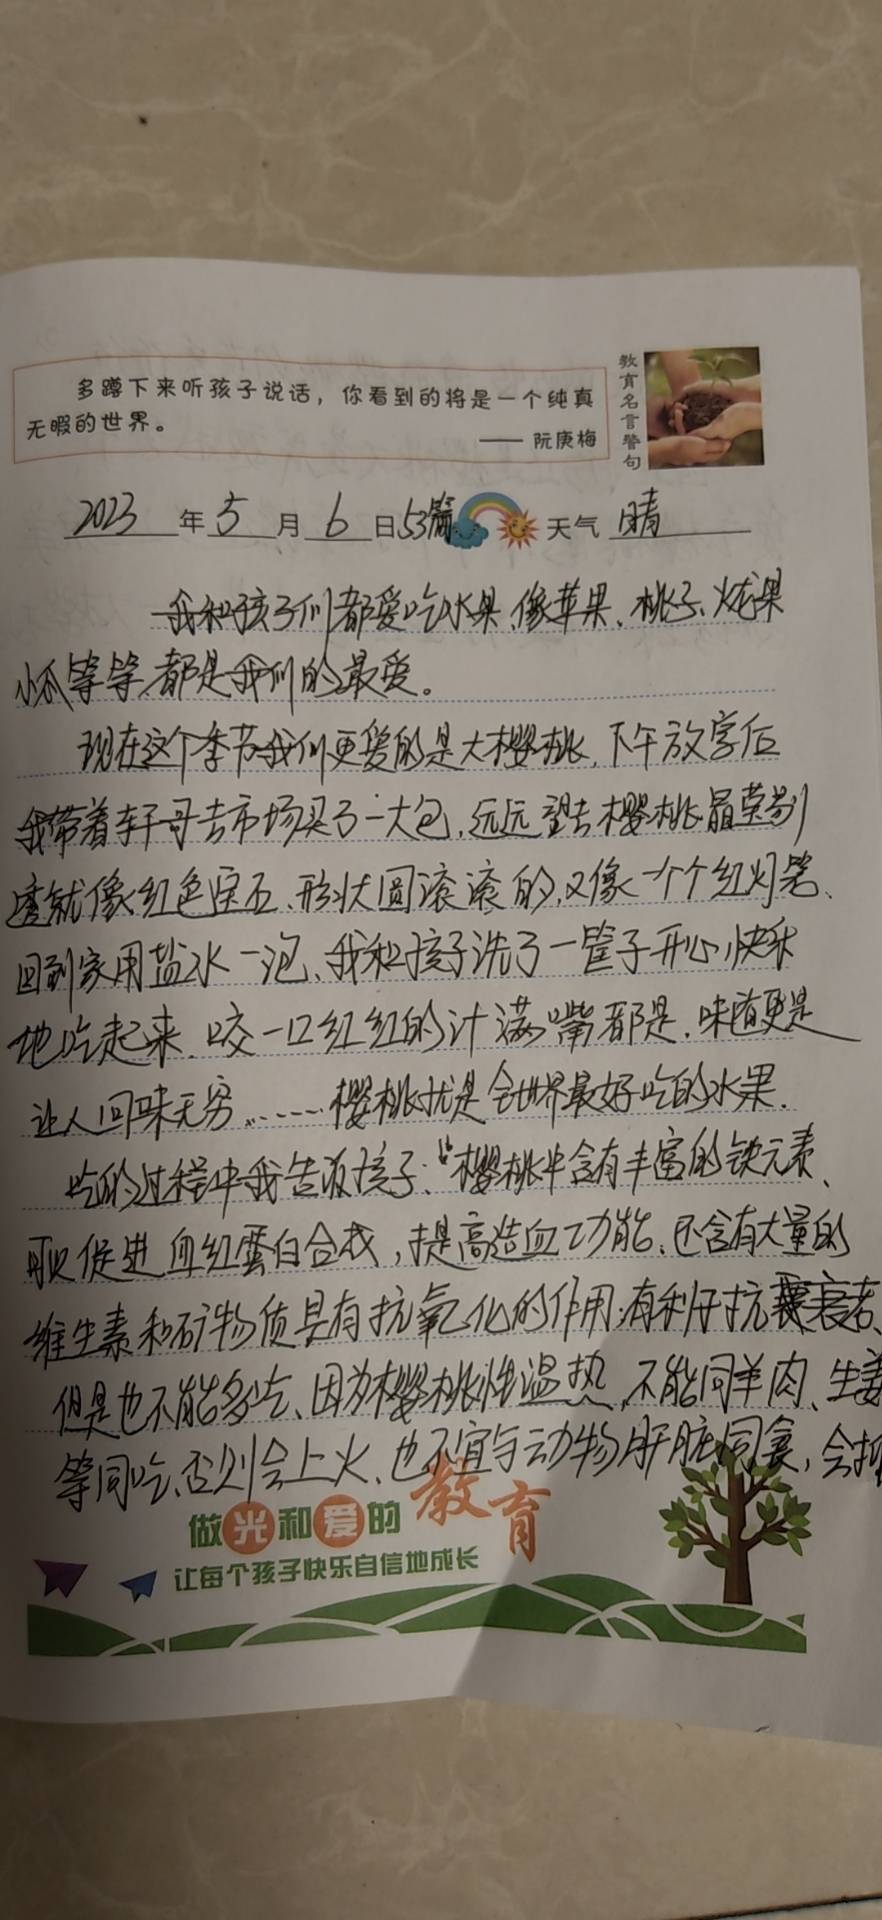 多蹲下来听孩子说话，你看到的将是一个纯真
无暇的世界。
—— 阮庚梅
教育名言警句
2023年5月6日53篇 天气 晴
我和孩子们都爱吃水果、像苹果、桃子、火龙果
小瓜等等、都是我们的最爱。
现在这个季节我们更爱的是大樱桃，下午放学后
我带着轩哥去市场买了一大包，远远望去樱桃晶莹剔
透就像红色宝石、形状圆滚滚的，又像一个个红灯笼、
回到家用盐水一泡、我和孩子洗了一筐子开心快乐
地吃起来、咬一口红红的汁满嘴都是，味道更是
让人回味无穷……樱桃就是全世界最好吃的水果.
吃的过程中我告诉孩子：“樱桃中含有丰富的铁元素、
可以促进血红蛋白合成，提高造血功能、还含有大量的
维生素和矿物质具有抗氧化的作用，有利于抗衰老、
但是也不能多吃、因为樱桃性温热，不能同羊肉、生姜
等同吃、否则会上火、也不宜与动物肝脏同食，会抑
做光和爱的教育
让每个孩子快乐自信地成长